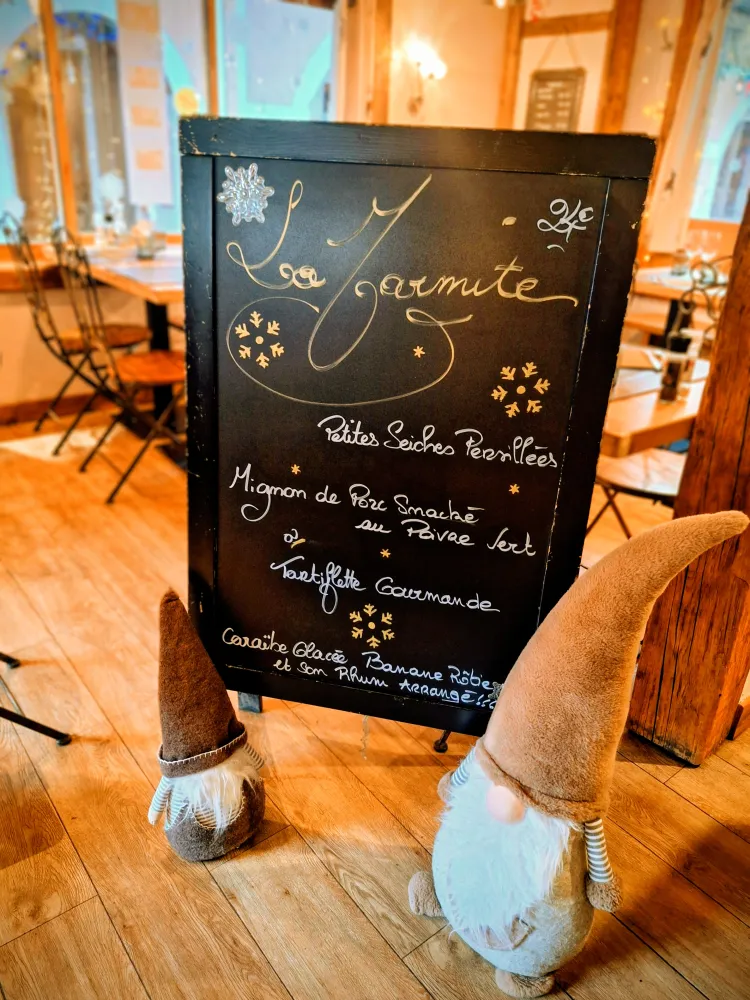 24€
La Marmite
Petites Seiches Persillées
Mignon de Porc Smacké
au Poivre Vert
ou
Tartiflette Gourmande
Caraïbe Glacée Banane Rôtie
et son Rhum ARRANGÉ!!!